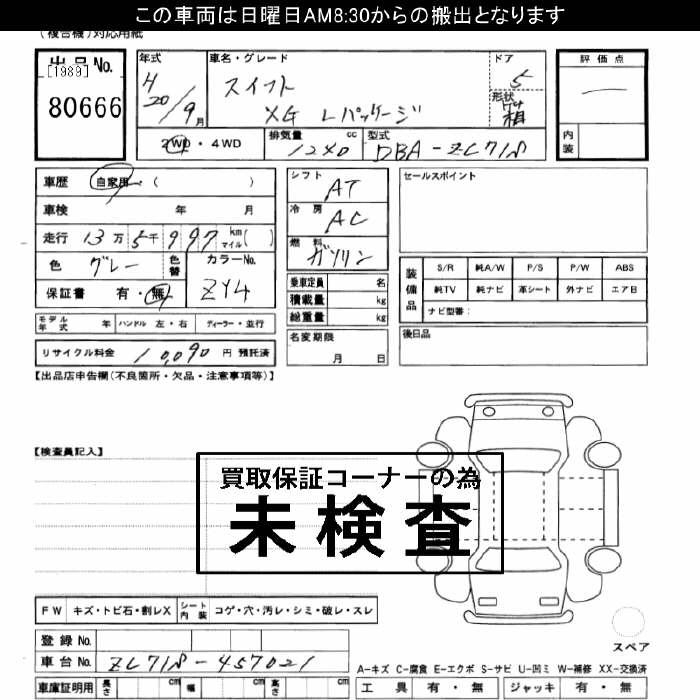 この車両は日曜日AM8:30からの搬出となります
(複合機)対応用紙
出品No.
[1989]
80666
年式
H
20/9月
車名・グレード
スイフト
XG Lパッケージ
ドア
5
形状
評価点
内装
2WD・4WD
排気量 cc
12X0
型式
DBA-ZC71S
車歴 自家用・( )
車検 年 月
走行 13万5千997 km マイル( )
色 グレー 色替
カラーNo. ZY4
保証書 有・無
モデル年式 年 ハンドル 左・右 ディーラー・並行
リサイクル料金 10,090 円 預託済
シフト AT
冷房 AC
燃料 ガソリン
乗車定員 名
積載量 kg
総重量 kg
名変期限
月 日
セールスポイント
装備品
S/R 純A/W P/S P/W ABS
純TV 純ナビ 革シート 外ナビ エアB
ナビ型番:
後日品
【出品店申告欄(不良箇所・欠品・注意事項等)】
【検査員記入】
買取保証コーナーの為
未検査
FW キズ・トビ石・割レX シート内装 コゲ・穴・汚レ・シミ・破レ・スレ
登録No.
車台No. ZC71S-457021
車庫証明用 長さ cm 幅 cm 高さ cm
スペア
A-キズ C-腐食 E-エクボ S-サビ U-凹ミ W-補修 XX-交換済
工具 有・無 ジャッキ 有・無